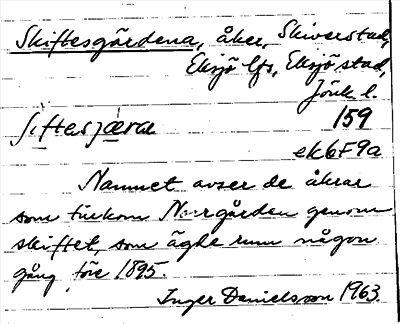 Skiftesgärdena, åker, Skiverstad,
Eksjö lfs, Eksjö stad,
Jönk l.
159
ek 6F9a
Namnet avser de åkrar
som tillkom Norrgården genom
skiftet, som ägde rum någon
gång före 1895.
Inger Danielsson 1963.